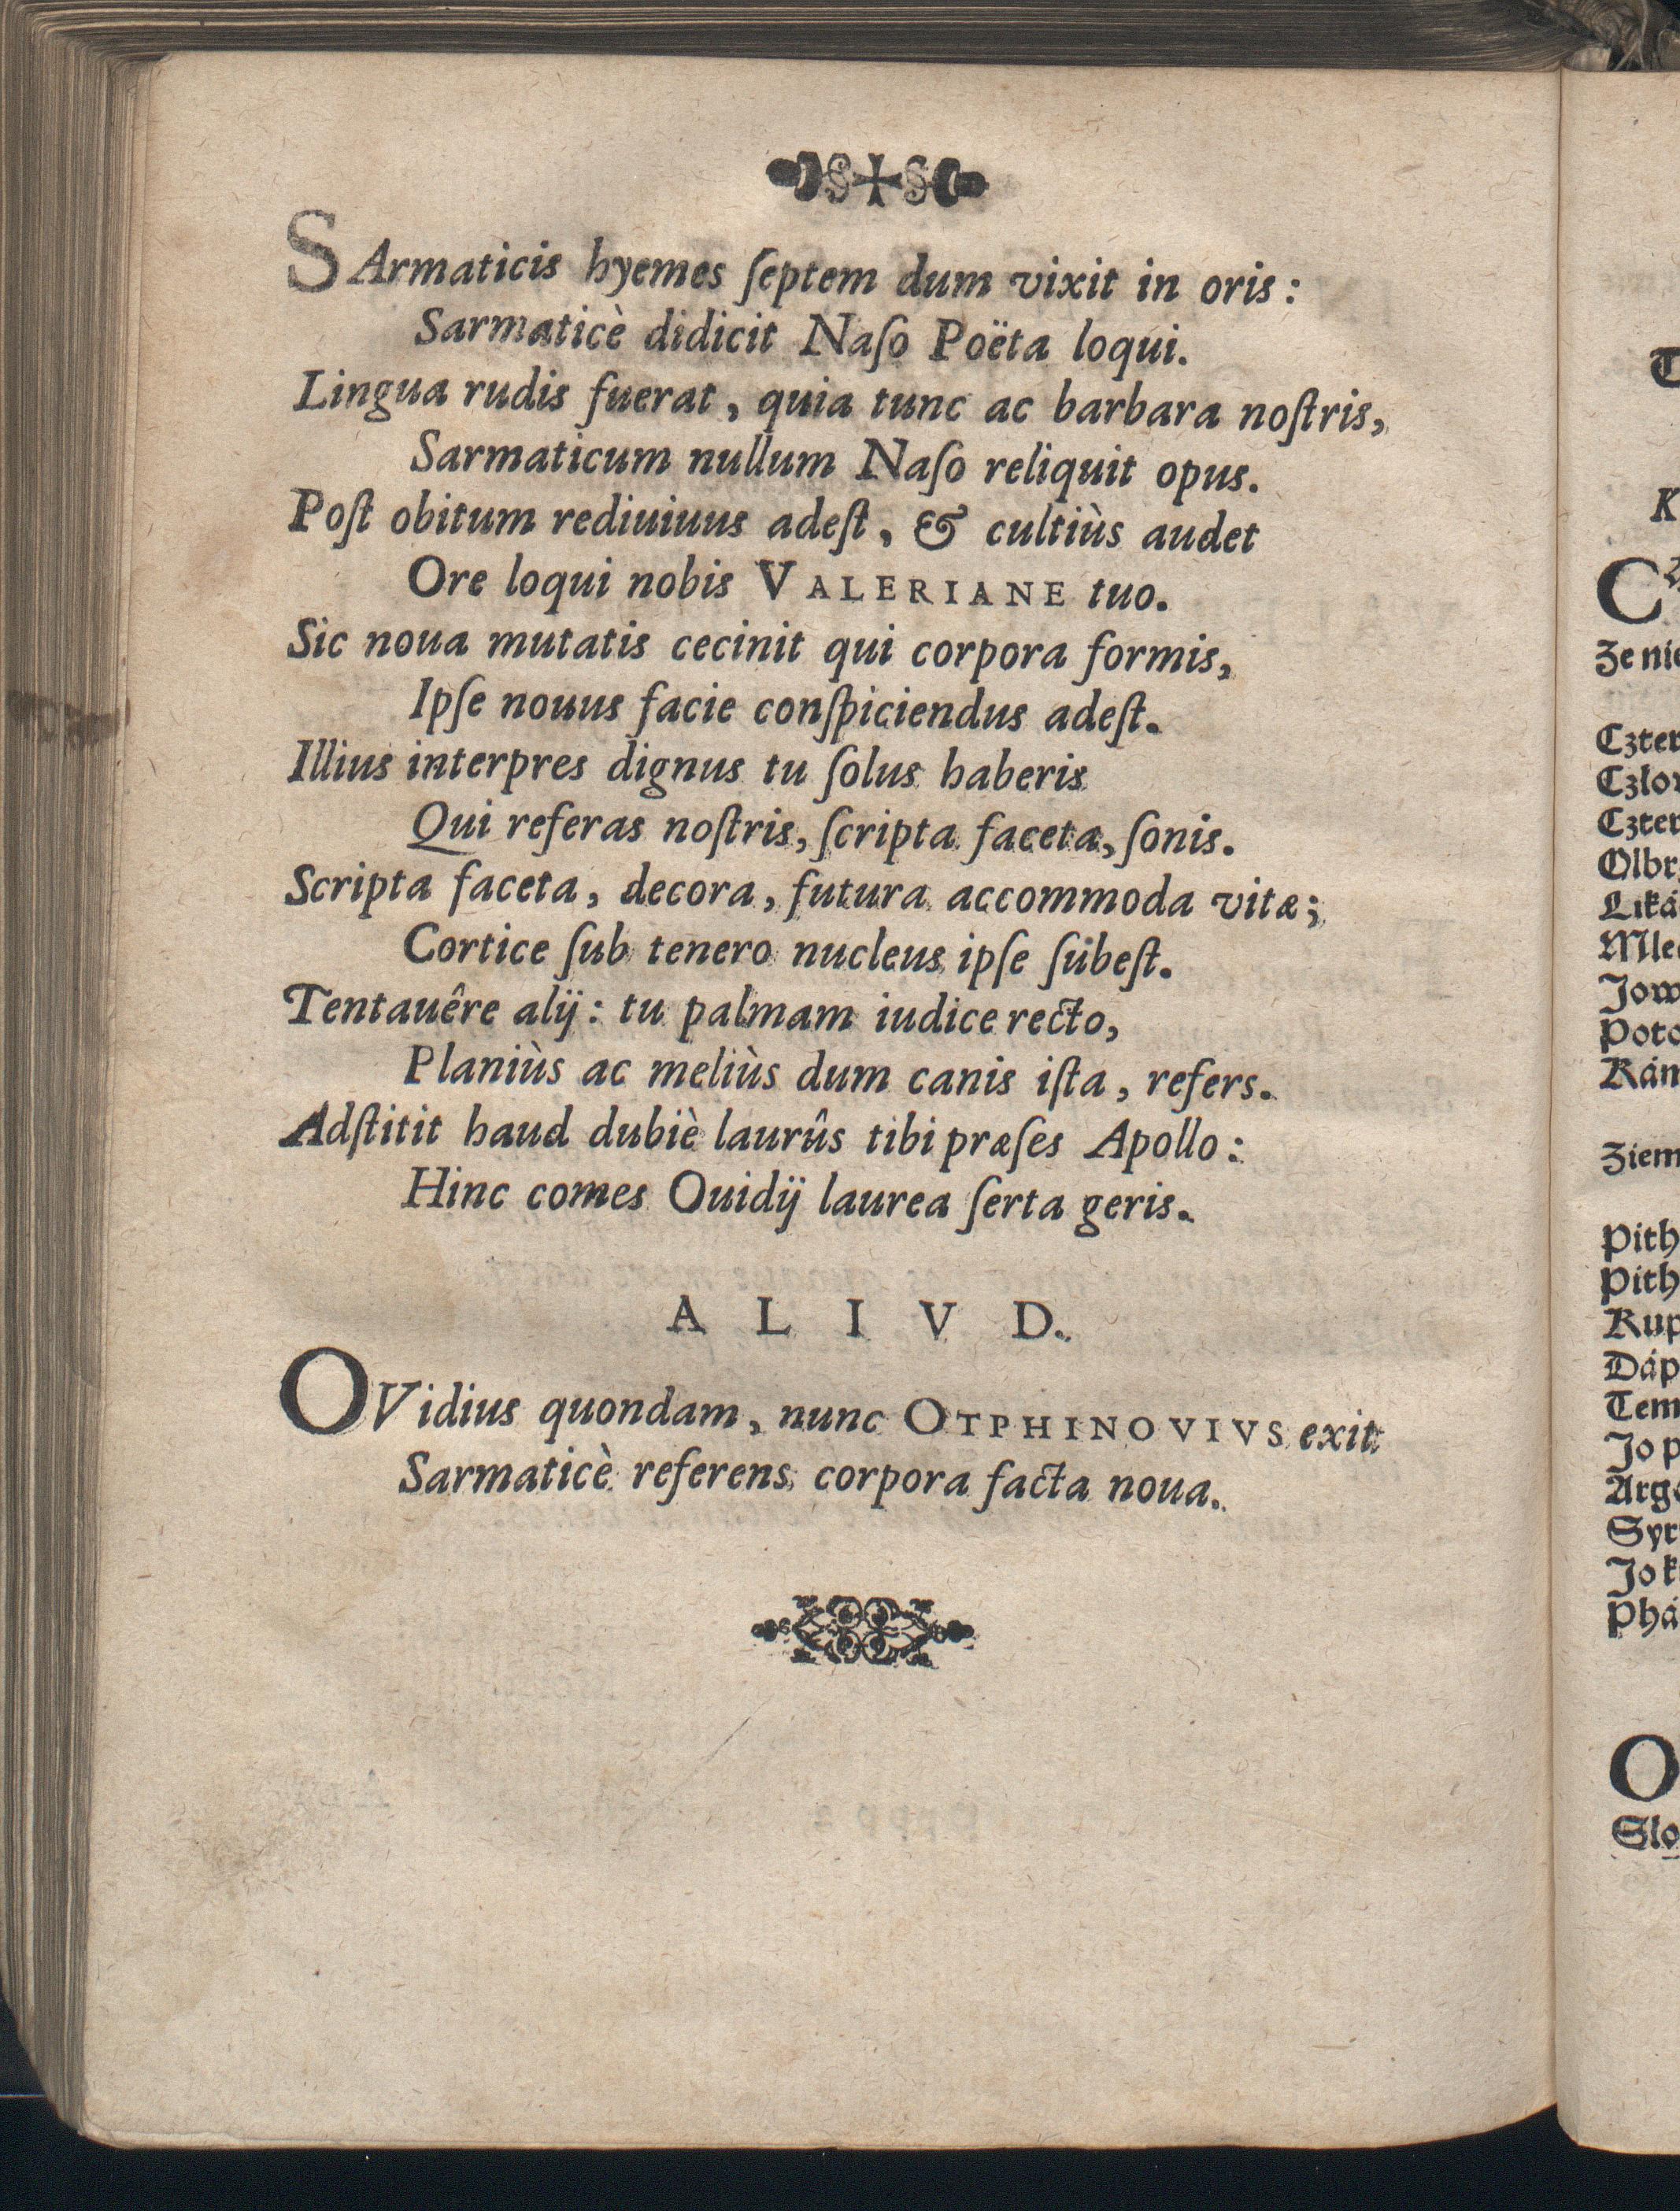 SArmaticis hyemes ſeptem dum vixit in oris:
Sarmaticè didicit Naſo Poëta loqui.
Lingua rudis fuerat, quia tunc ac barbara noſtris,
Sarmaticum nullum Naſo reliquit opus.
Poſt obitum rediuiuus adeſt, & cultiùs audet
Ore loqui nobis VALERIANE tuo.
Sic noua mutatis cecinit qui corpora formis,
Ipſe nouus facie conſpiciendus adeſt.
Illius interpres dignus tu ſolus haberis
Qui referas noſtris, ſcripta faceta, ſonis.
Scripta faceta, decora, futura accommoda vitæ;
Cortice ſub tenero nucleus ipſe ſubeſt.
Tentauêre alij: tu palmam iudice recto,
Planiùs ac meliùs dum canis iſta, refers.
Adſtitit haud dubiè laurûs tibi præſes Apollo:
Hinc comes Ouidij laurea ſerta geris.
ALIVD.
OVidius quondam, nunc OTPHINOVIVS exit
Sarmaticè referens corpora facta noua.
T
K
Cz
Ze nie
Czter
Człow
Czter
Olbrz
Liká
Mlec
Jow
Poto
Kám
Ziem
Pith
Pith
Kup
Dáp
Tem
Jo p
Argo
Syr
Jo k
Phá
O
Slo